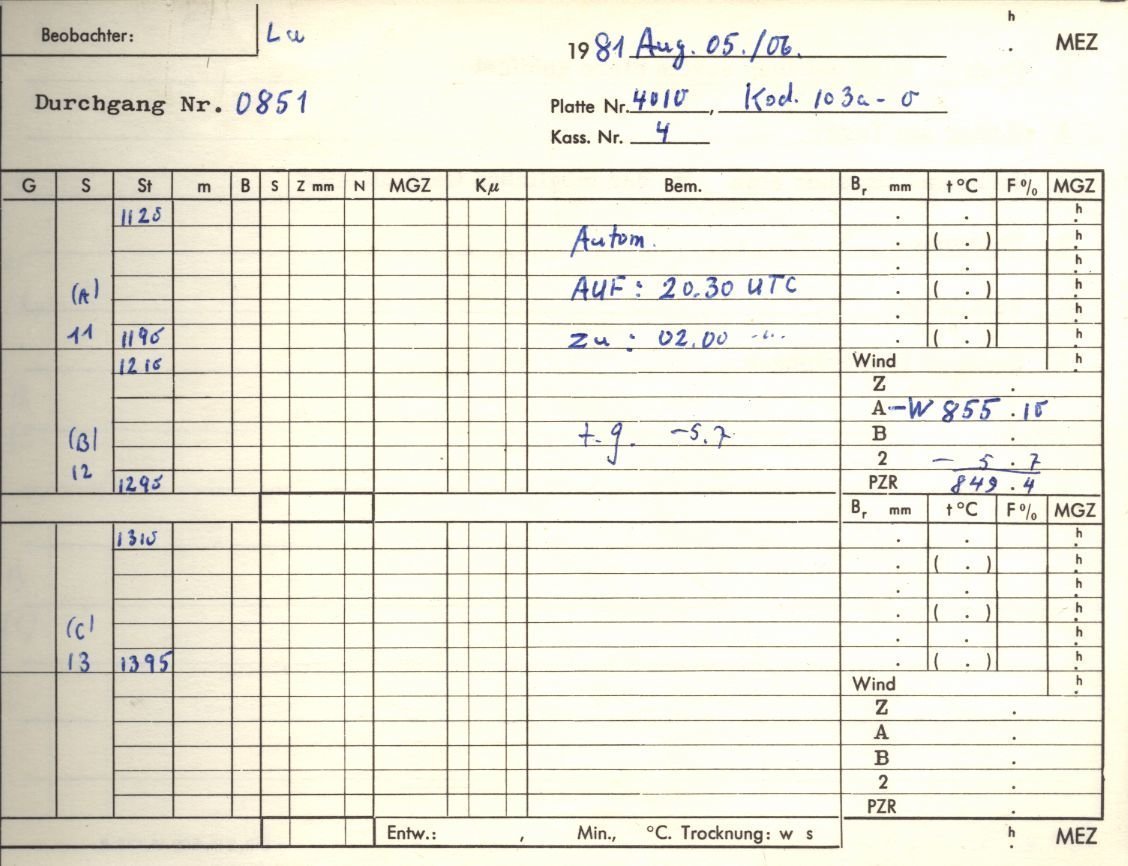 Beobachter: Lu
1981 Aug. 05./06. h . MEZ
Durchgang Nr. 0851
Platte Nr. 4010, Kod. 103a-O
Kass. Nr. 4
G S St m B S Z mm N MGZ Kμ Bem. Br mm t°C F% MGZ
1120 . . h
Autom. . ( . ) h
. . h
(A) AUF: 20.30 UTC . ( . ) h
. . h
11 1190 zu: 02.00 -"- . ( . ) h
1210 Wind h
Z .
A -W 855.10
(B) t.g. -5.7 B .
12 2 - 5.7
1290 PZR 849.4
Br mm t°C F% MGZ
1310 . . h
. ( . ) h
. . h
. ( . ) h
(C) . . h
13 1395 . ( . ) h
Wind h
Z .
A .
B .
2 .
PZR .
Entw.: , Min., °C. Trocknung: w s h . MEZ